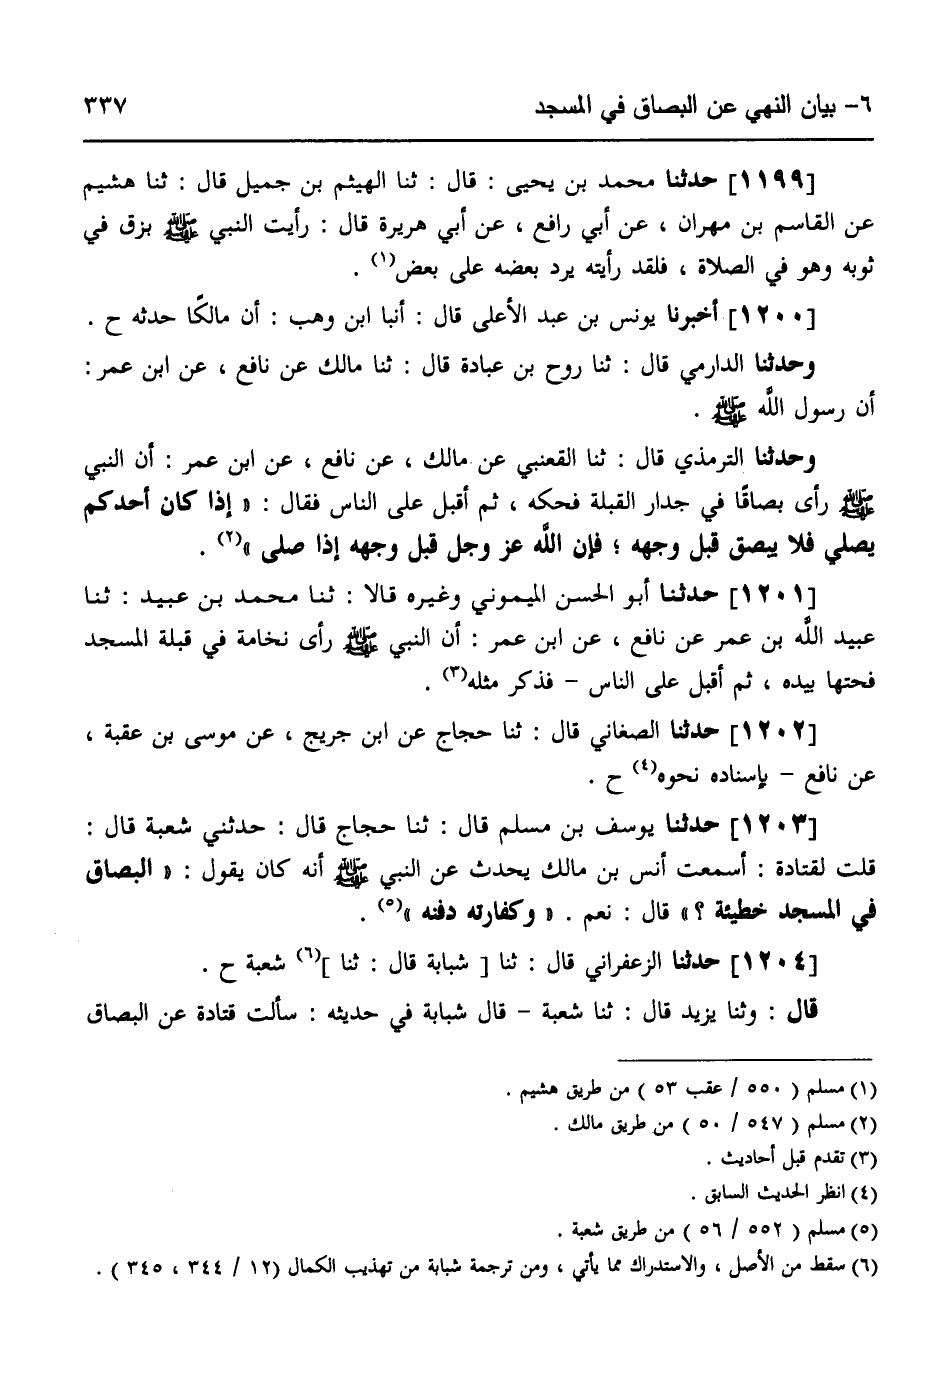 ٦- بيان النهي عن البصاق في المسجد ٣٣٧
[١١٩٩] حدثنا محمد بن يحيى : قال : ثنا الهيثم بن جميل قال : ثنا هشيم
عن القاسم بن مهران ، عن أبي رافع ، عن أبي هريرة قال : رأيت النبي ﷺ بزق في
ثوبه وهو في الصلاة ، فلقد رأيته يرد بعضه على بعض(١) .
[١٢٠٠] أخبرنا يونس بن عبد الأعلى قال : أنبا ابن وهب : أن مالكًا حدثه ح .
وحدثنا الدارمي قال : ثنا روح بن عبادة قال : ثنا مالك عن نافع ، عن ابن عمر :
أن رسول اللَّه ﷺ .
وحدثنا الترمذي قال : ثنا القعنبي عن مالك ، عن نافع ، عن ابن عمر : أن النبي
ﷺ رأى بصاقًا في جدار القبلة فحكه ، ثم أقبل على الناس فقال : « إذا كان أحدكم
يصلي فلا يبصق قبل وجهه ؛ فإن اللَّه عز وجل قبل وجهه إذا صلى »(٢) .
[١٢٠١] حدثنا أبو الحسن الميموني وغيره قالا : ثنا محمد بن عبيد : ثنا
عبيد اللَّه بن عمر عن نافع ، عن ابن عمر : أن النبي ﷺ رأى نخامة في قبلة المسجد
فحتها بيده ، ثم أقبل على الناس – فذكر مثله(٣) .
[١٢٠٢] حدثنا الصغاني قال : ثنا حجاج عن ابن جريج ، عن موسى بن عقبة ،
عن نافع – بإسناده نحوه(٤) ح .
[١٢٠٣] حدثنا يوسف بن مسلم قال : ثنا حجاج قال : حدثني شعبة قال :
قلت لقتادة : أسمعت أنس بن مالك يحدث عن النبي ﷺ أنه كان يقول : « البصاق
في المسجد خطيئة ؟» قال : نعم . « وكفارته دفنه »(٥) .
[١٢٠٤] حدثنا الزعفراني قال : ثنا [ شبابة قال : ثنا ](٦) شعبة ح .
قال : وثنا يزيد قال : ثنا شعبة – قال شبابة في حديثه : سألت قتادة عن البصاق
(١) مسلم ( ٥٥٠ / عقب ٥٣ ) من طريق هشيم .
(٢) مسلم ( ٥٤٧ / ٥٠ ) من طريق مالك .
(٣) تقدم قبل أحاديث .
(٤) انظر الحديث السابق .
(٥) مسلم ( ٥٥٢ / ٥٦ ) من طريق شعبة .
(٦) سقط من الأصل ، والاستدراك مما يأتي ، ومن ترجمة شبابة من تهذيب الكمال (١٢ / ٣٤٤ ، ٣٤٥ ) .